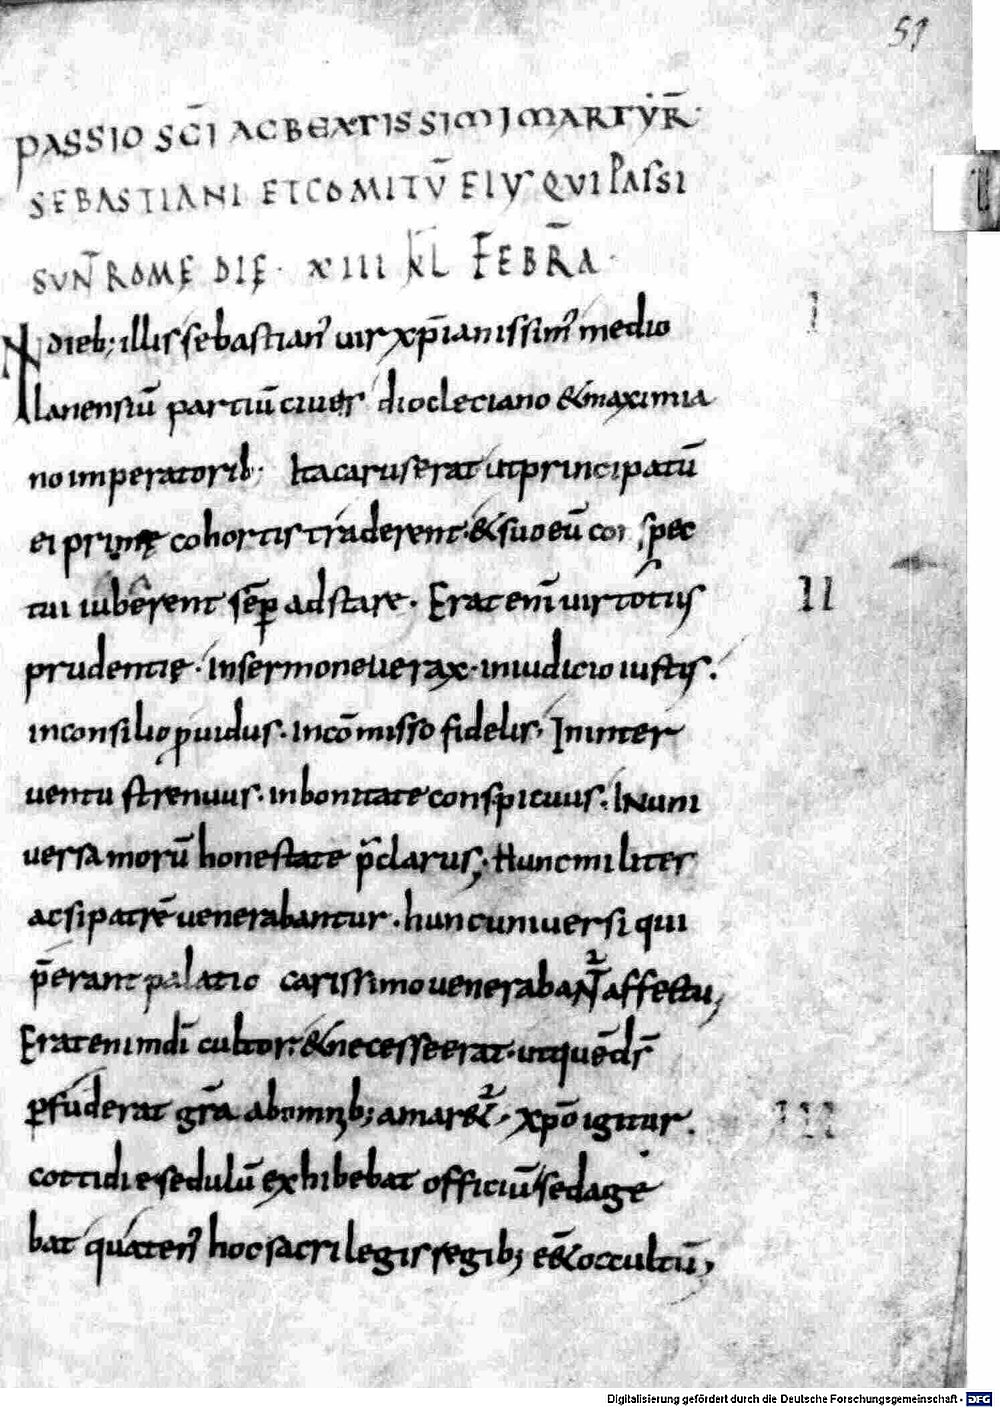 59
PASSIO SC̄I AC BEATISSIMI MARTẎR̄·
SEBASTIANI ET COMITŪ EIUS QVI PASSI
SVN̄ ROMĘ DIE· XIII KL FEBR̄A·
IN dieb; illis sebastian᾽ uir xp̄ianissim᾽ medio
I
lanensiū partiū ciues diocleciano & maximia
no imperatorib· Ita carus erat ut principatū
ei primę cohortis traderent· & suo eū con spec
tui iuberent sēp adstare· Erat enī uir totius
II
prudentię· in sermone uerax· in iudicio iustus·
in consilio p̱uidus· in cōmisso fidelis· In inter
uentu strenuus· in bonitate conspicuus· IN uni
uersa morū honestate p̄clarus; Hunc milites
ac si patrē uenerabantur· hunc uniuersi qui
p̄erant palatio carissimo uenerabaN̄T affectu;
Erat enim dī cultor· & necesse erat· ut quē ds̄
ꝑfuderat gr̄a ab omnib; amar&· xp̄o igitur
III
cottidie sedulū exhibebat officiū sed age
bat quaten᾽ hoc sacrilegis regib; ēe& occultū;
Digitalisierung gefördert durch die Deutsche Forschungsgemeinschaft - DFG